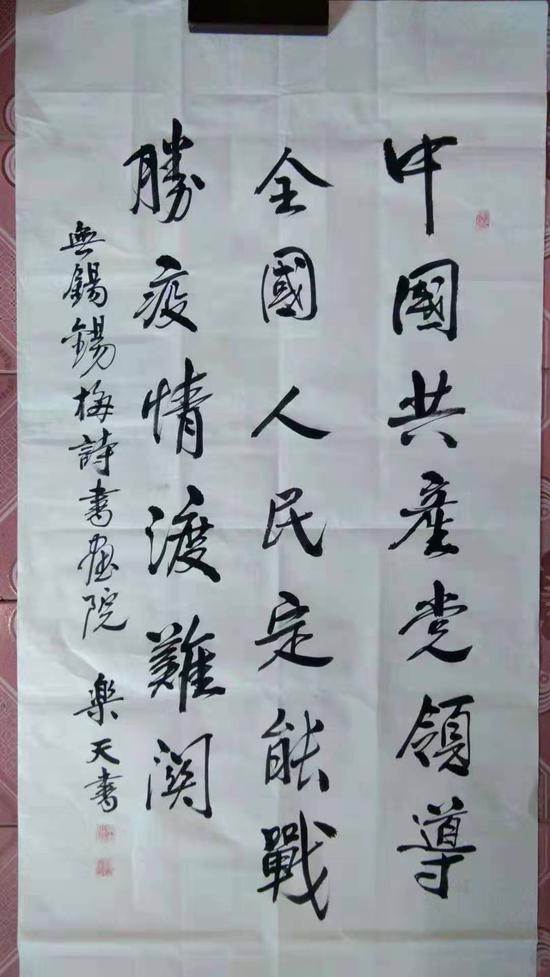 中國共產党領導
全國人民定能戰
勝疫情渡難関
無錫錫梅詩書画院
樂天書